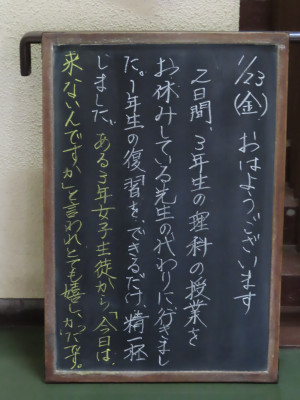 1/23(金) おはようございます
2日間、3年生の理科の授業を
お休みしている先生の代わりに行きまし
た。1年生の復習を、できるだけ、精一杯
しました。ある3年女子生徒から、「今日は、
来ないんですか」と言われ、とても嬉しかったです。